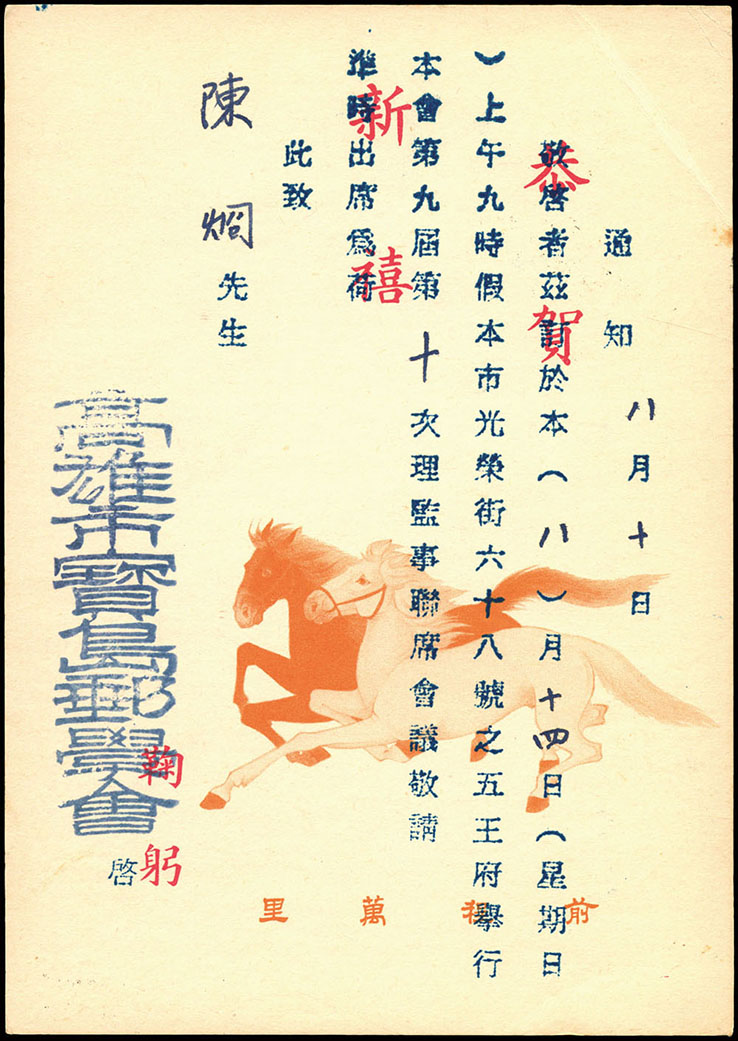 通知
八月十日
敬啓者茲訂於本（八）月十四日（星期日
）上午九時假本市光榮街六十八號之五王府舉行
本會第九屆第十次理監事聯席會議敬請
準時出席為荷
此致
陳炯先生
高雄市寶島郵學會
啓
恭賀
新禧
鞠躬
前程萬里